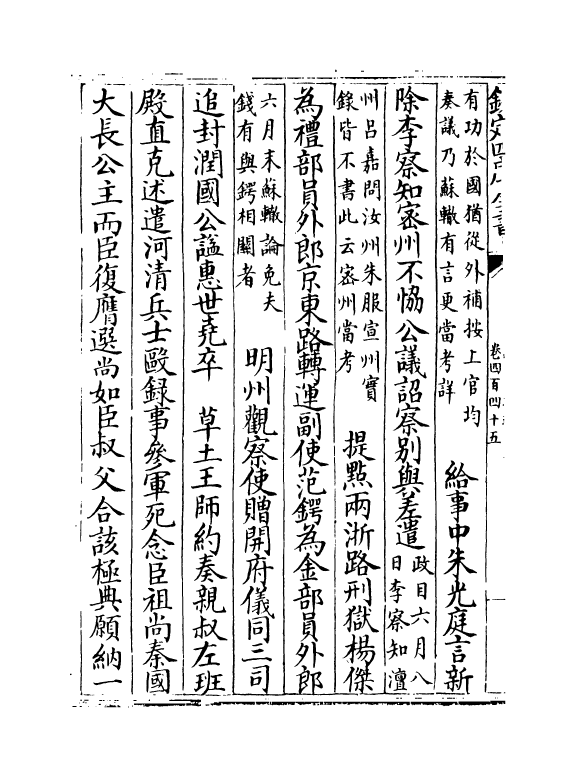 欽定四庫全書
卷四百四十五
有功於國猶從外補按上官均
奏議乃蘇轍有言更當考詳
給事中朱光庭言新
除李察知密州不恊公議詔察别與差遣
政目六月八
日李察知澶
州吕嘉問汝州朱服宣州實
錄皆不書此云密州當考
提點兩浙路刑獄楊傑
為禮部員外郎京東路轉運副使范鍔為金部員外郎
六月末蘇轍論免夫
錢有與鍔相關者
明州觀察使贈開府儀同三司
追封潤國公諡惠世堯卒　草土王師約奏親叔左班
殿直克述遣河清兵士毆録事參軍死念臣祖尚秦國
大長公主而臣復膺選尚如臣叔父合該極典願納一